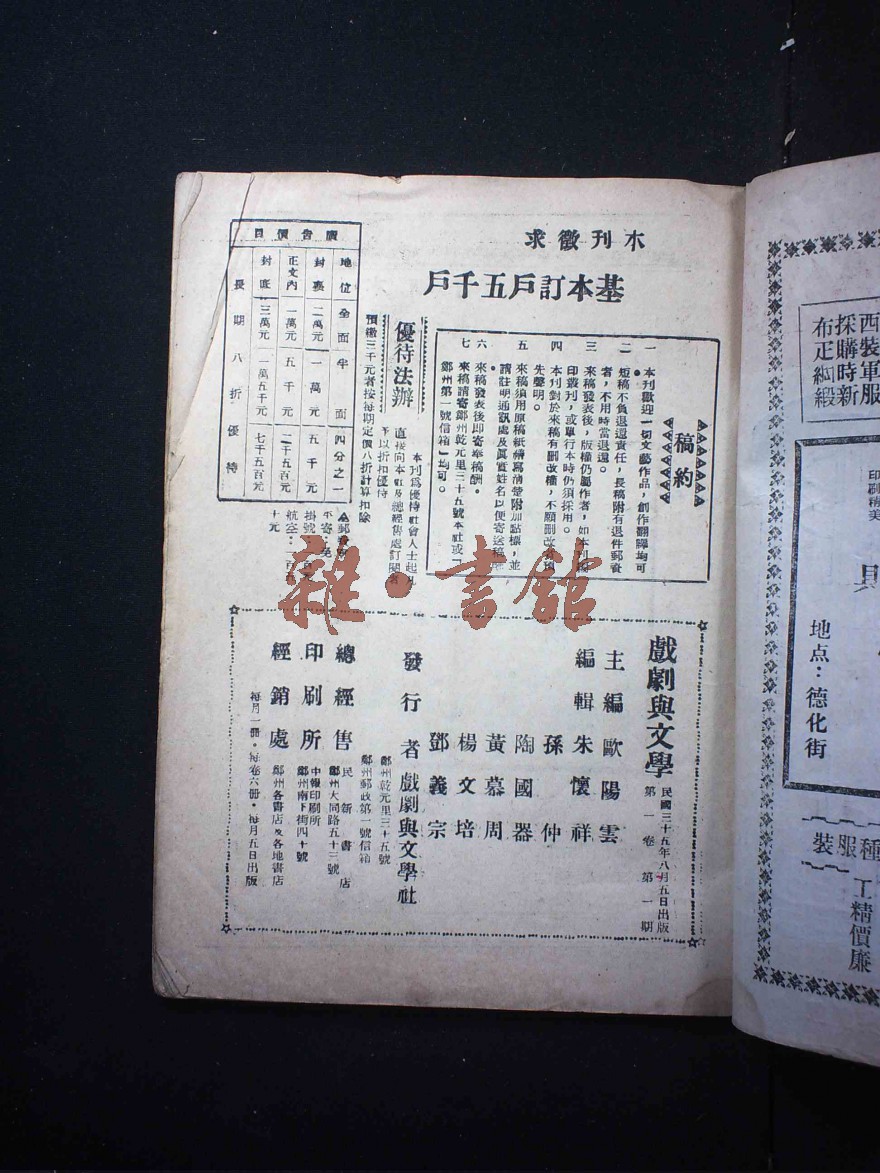 本刊徵求
基本訂戶五千戶
稿約
一 本刊歡迎一切文藝作品，創作翻譯均可
二 短稿不負退還責任，長稿附有退件郵資
者，不用時當退還。
三 來稿發表後，版權仍屬作者，如本刊
印叢刊，或單行本時仍須採用。
四 本刊對於來稿有刪改權，不願刪改者預
先聲明。
五 來稿須用原稿紙繕寫清楚附加點標，並
請註明通訊處及眞實姓名以便寄送稿
。
六 來稿發表後即寄奉稿酬。
七 來稿請寄鄭州乾元里三十五號本社或「
鄭州第一號信箱」均可。
優待法辦
本刊爲優待社會人士起見
直接向本社及總經售處訂閱者
予以折扣優待
預繳三千元者按每期定價八折計算扣除
郵
平寄：免
掛號：
航空：一百
十元
廣告價目
地位 全面 半面 四分之一
封裏 二萬元 一萬元 五千元
正文內 一萬元 五千元 二千五百元
封底 三萬元 一萬五千元 七千五百元
長期八折優待
戲劇與文學
民國三十五年八月五日出版
第一卷 第一期
主編 歐陽雲
編輯 朱懷祥
孫仲
陶國器
黃慕周
楊文培
鄧義宗
發行者 戲劇與文學社
鄭州乾元里三十五號
鄭州郵政第一號信箱
總經售 民新書店
鄭州大同路五十三號
印刷所 中報印刷所
鄭州南下街四十號
經銷處 鄭州各書店及各地書店
每月一冊・每卷六冊・每月五日出版
雜・書館
西裝軍服
採購時新
布疋綢緞
印刷精美
地点：德化街
種服裝
工精價廉